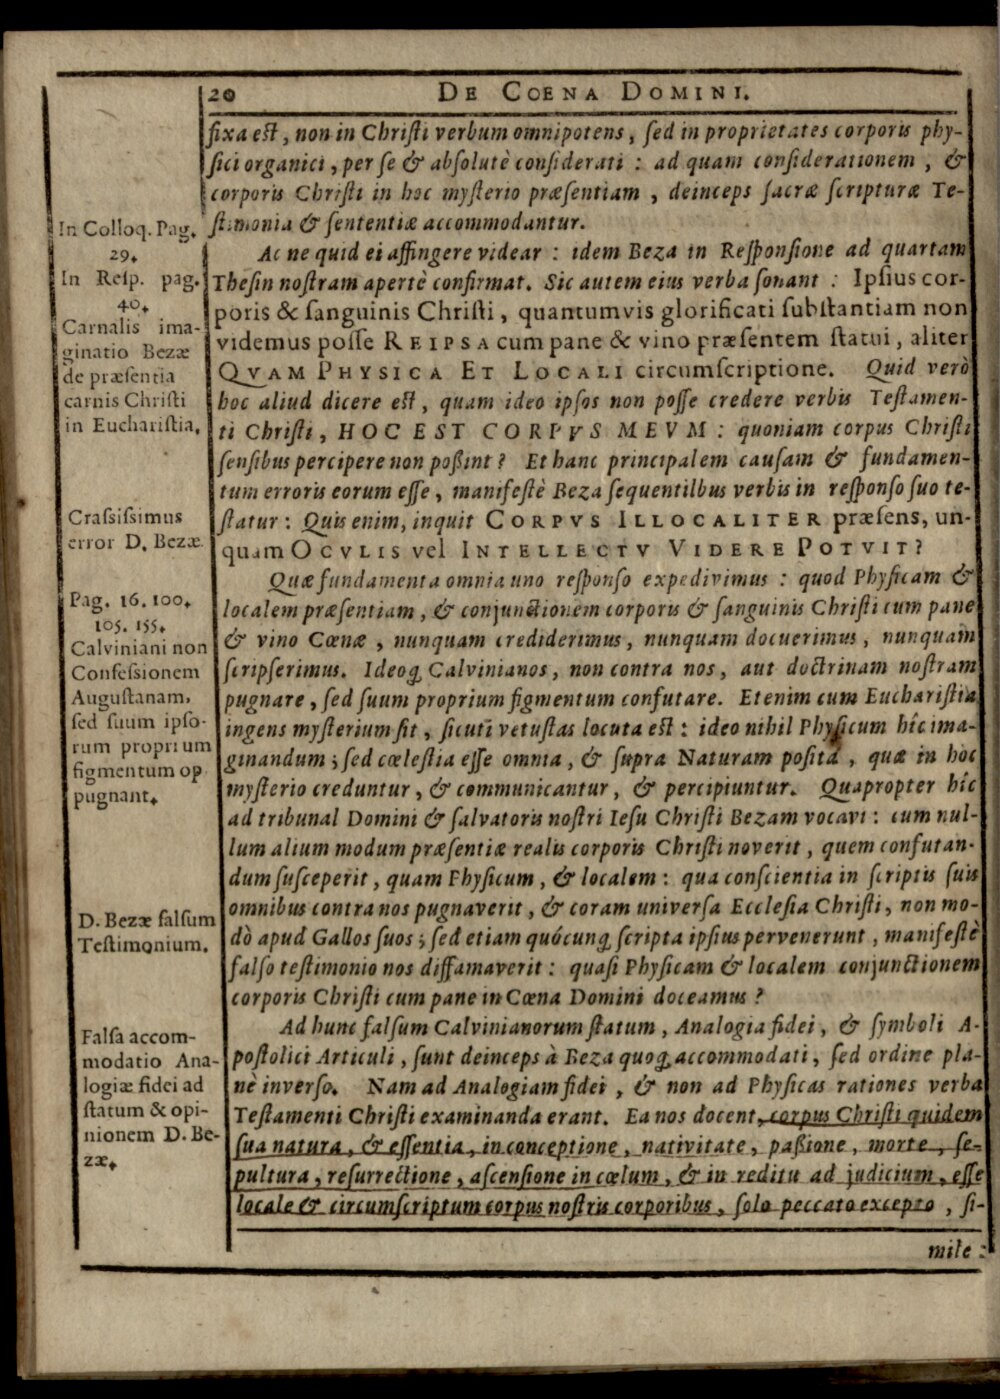 20 DE COENA DOMINI.
fixa est, non in Christi verbum omnipotens, sed in proprietates corporis phy-
sici organici, per se & absolutè considerati : ad quam considerationem, &
corporis Christi in hoc mysterio præsentiam, deinceps sacræ scripturæ Te-
stimonia & sententiæ accommodantur.
In Colloq. Pag.
29.
In Resp. pag.
40.
Carnalis ima-
ginatio Bezæ
de præsentia
carnis Christi
in Eucharistia.
Ac ne quid ei affingere videar : idem Beza in Responsione ad quartam
Thesin nostram apertè confirmat. Sic autem eius verba sonant : Ipsius cor-
poris & sanguinis Christi, quantumvis glorificati substantiam non
videmus posse REIPSA cum pane & vino præsentem statui, aliter
QVAM PHYSICA ET LOCALI circumscriptione. Quid verò
hoc aliud dicere est, quam ideo ipsos non posse credere verbis Testamen-
ti Christi, HOC EST CORPVS MEVM : quoniam corpus Christi
sensibus percipere non poßint ? Et hanc principalem causam & fundamen-
tum erroris eorum esse, manifestè Beza sequentilbus verbis in responso suo te-
statur : Quis enim, inquit CORPVS ILLOCALITER præsens, un-
quam OCVLIS vel INTELLECTV VIDERE POTVIT ?
Crassissimus
error D. Bezæ.
Quæ fundamenta omnia uno responso expedivimus : quod Physicam &
localem præsentiam, & conjunctionem corporis & sanguinis Christi cum pane
& vino Cœnæ, nunquam crediderimus, nunquam docuerimus, nunquam
scripserimus. Ideoq; Calvinianos, non contra nos, aut doctrinam nostram
pugnare, sed suum proprium figmentum confutare. Etenim cum Eucharistia
ingens mysterium sit, sicuti vetustas locuta est : ideo nihil Physicum hîc ima-
ginandum ; sed cœlestia esse omnia, & supra Naturam posita, quæ in hoc
mysterio creduntur, & communicantur, & percipiuntur. Quapropter hîc
ad tribunal Domini & salvatoris nostri Iesu Christi Bezam vocavi : cum nul-
lum alium modum præsentiæ realis corporis Christi noverit, quem confutan-
dum susceperit, quam Physicum, & localem : qua conscientia in scriptis suis
omnibus contra nos pugnaverit, & coram universa Ecclesia Christi, non mo-
dò apud Gallos suos ; sed etiam quócunq; scripta ipsius pervenerunt, manifestè
falso testimonio nos diffamaverit : quasi Physicam & localem conjunctionem
corporis Christi cum pane in Cœna Domini doceamus ?
Pag. 16. 100.
105. 155.
Calviniani non
Confessionem
Augustanam,
sed suum ipso-
rum proprium
figmentum op
pugnant.
D. Bezæ falsum
Testimonium.
Ad hunc falsum Calvinianorum statum, Analogia fidei, & symboli A-
postolici Articuli, sunt deinceps à Beza quoq; accommodati, sed ordine pla-
nè inverso. Nam ad Analogiam fidei, & non ad Physicas rationes verba
Testamenti Christi examinanda erant. Ea nos docent, corpus Christi quidem
sua natura, & essentia, in conceptione, nativitate, paßione, morte, se-
pultura, resurrectione, ascensione in cœlum, & in reditu ad judicium, esse
locale & circumscriptum corpus nostris corporibus, solo peccato excepto, si-
Falsa accom-
modatio Ana-
logiæ fidei ad
statum & opi-
nionem D. Be-
zæ.
mile :